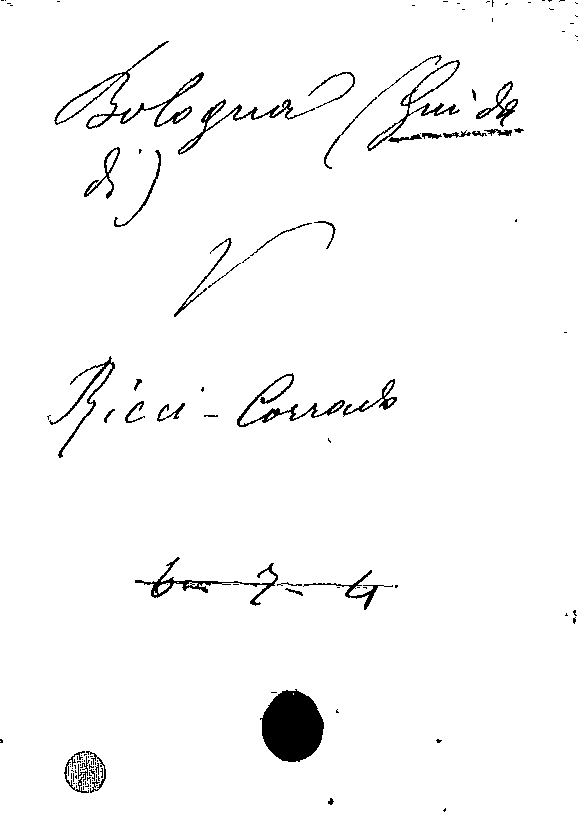 Bologna (Guida
di)
V
Ricci - Corrado
6 - 7 - 4